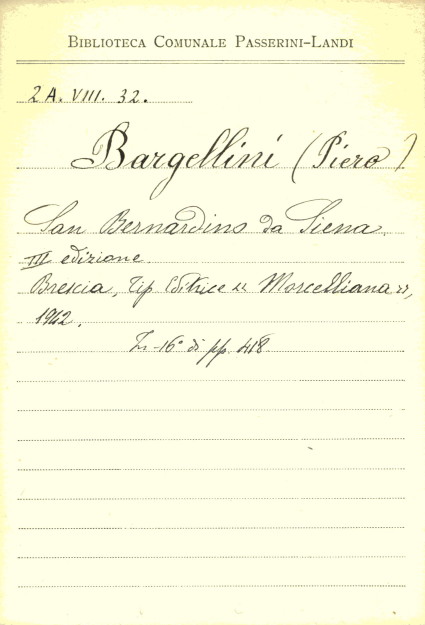 BIBLIOTECA COMUNALE PASSERINI-LANDI
2A. VIII. 32.
Bargellini (Piero)
San Bernardino da Siena.
III edizione.
Brescia, Tip. Editrice "Morcelliana",
1942.
In-16° di pp. 418